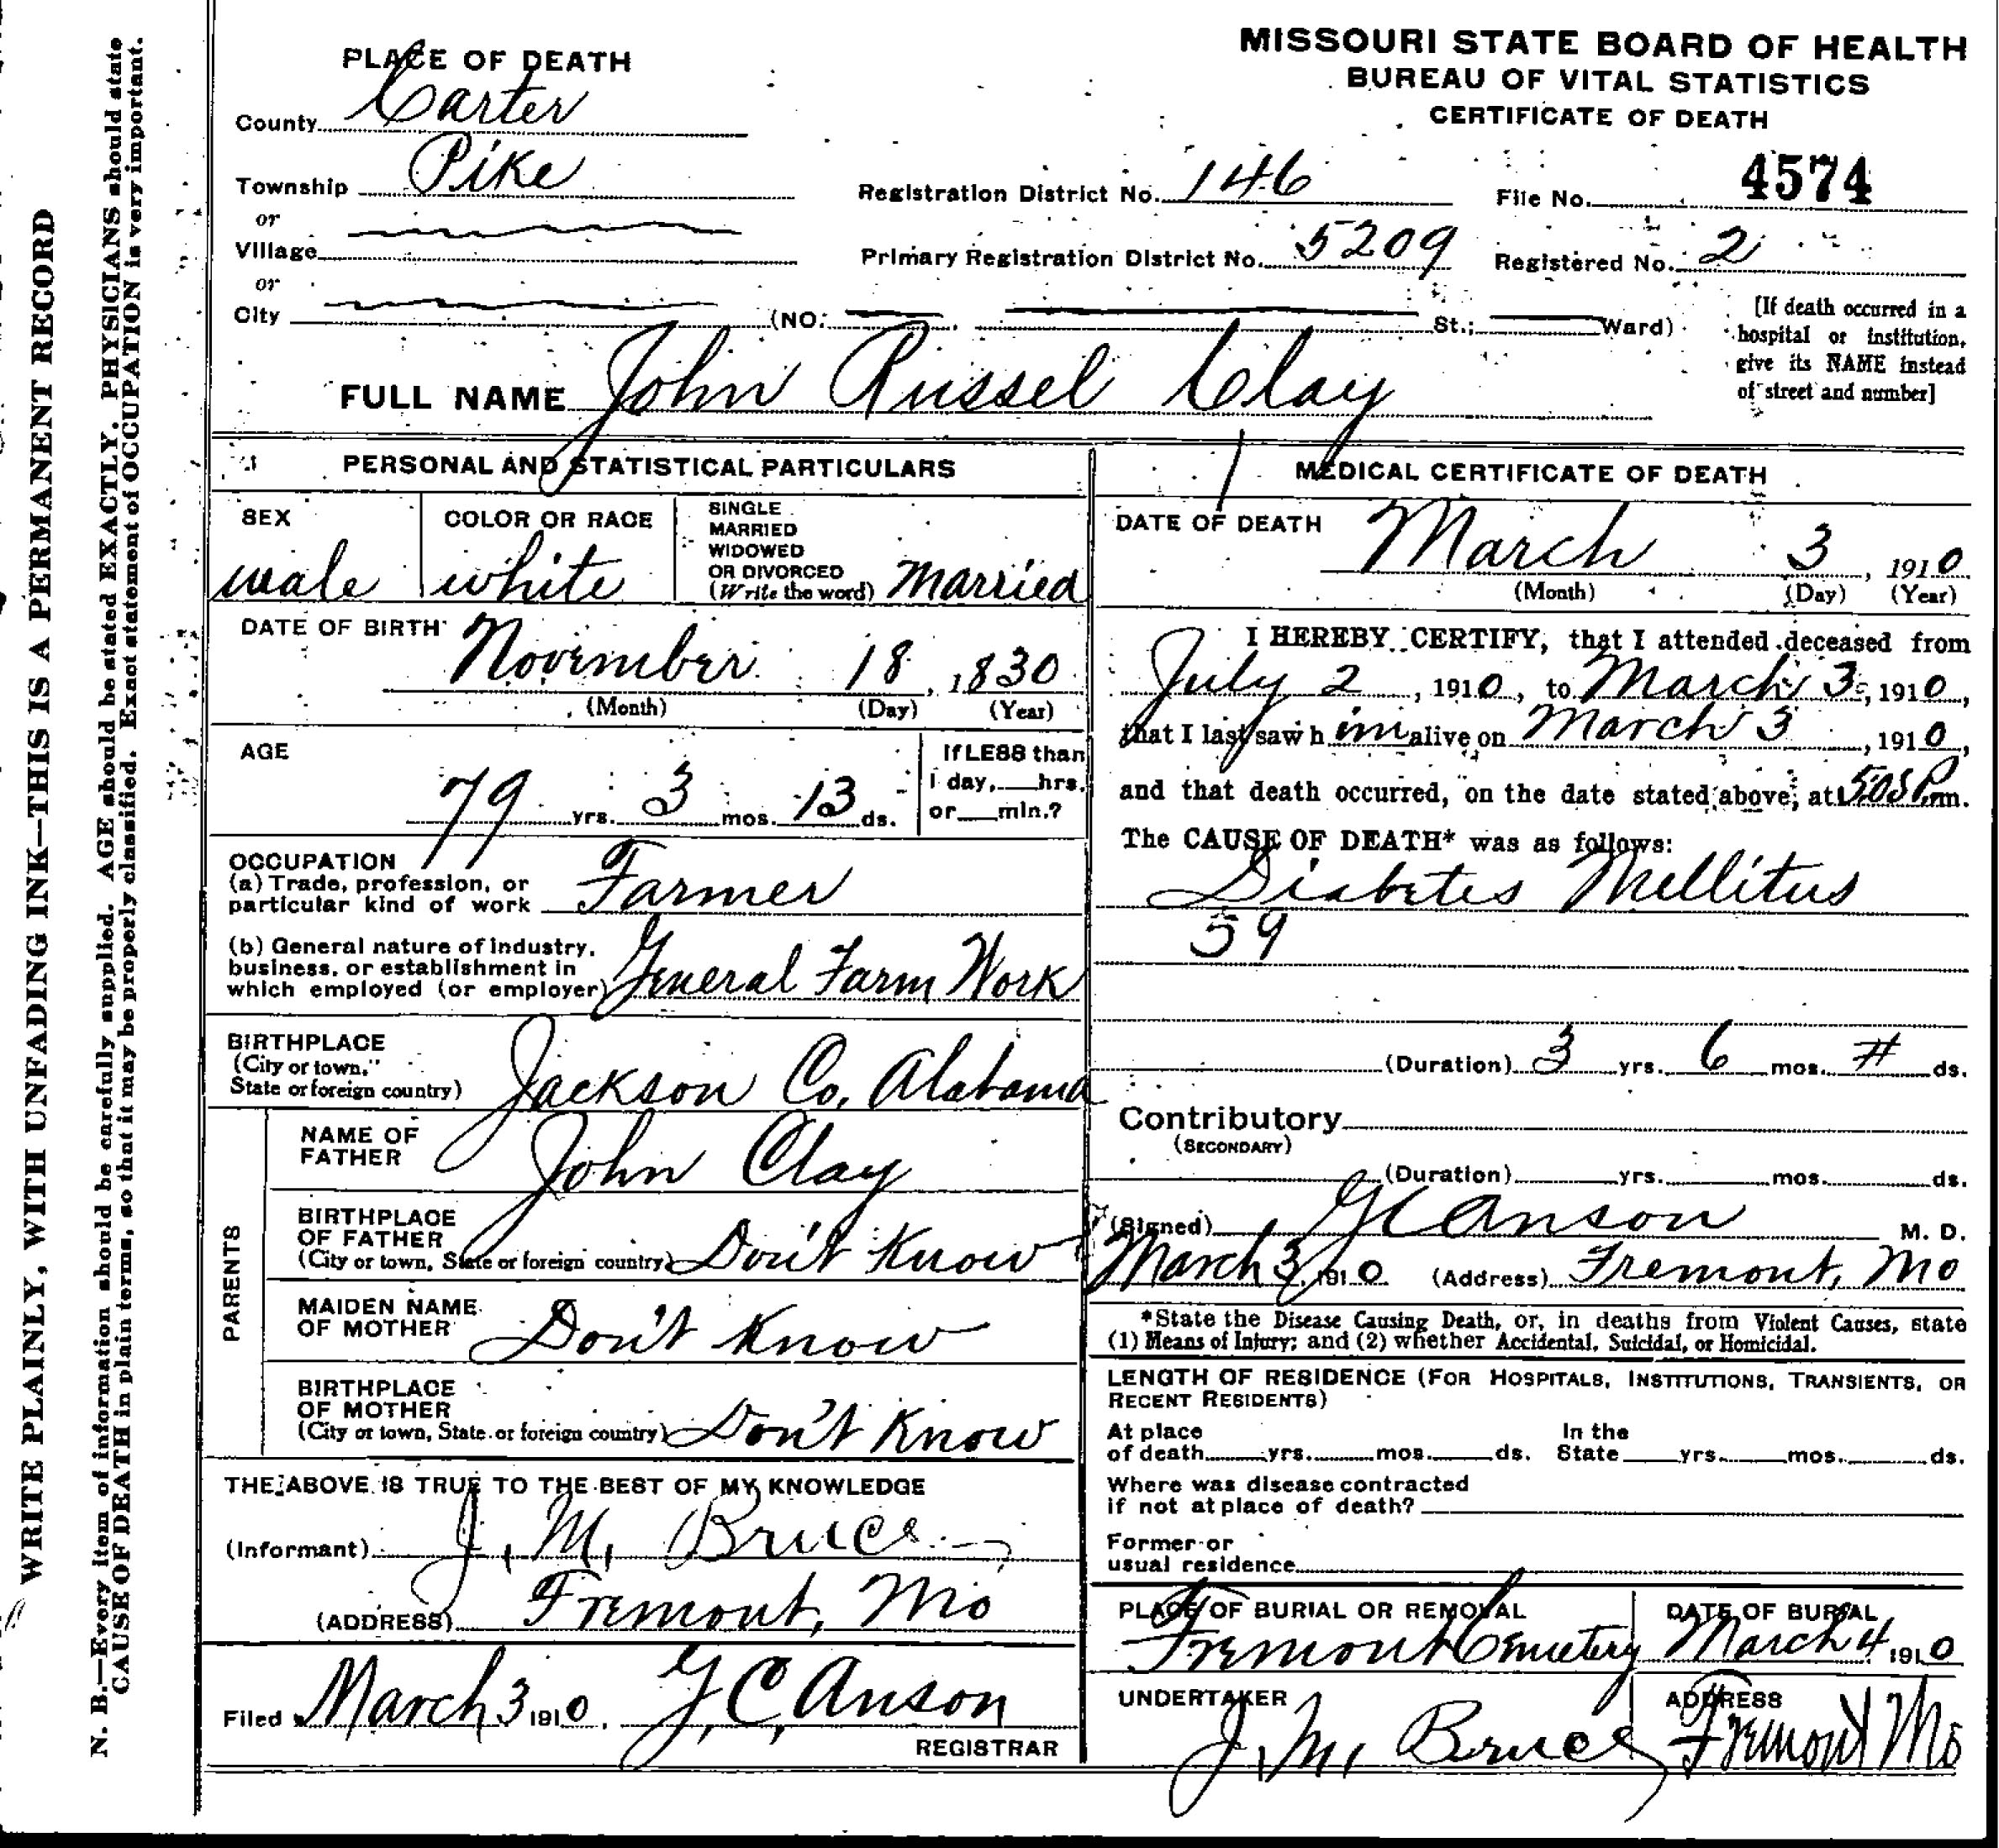 WRITE PLAINLY, WITH UNFADING INK—THIS IS A PERMANENT RECORD
N. B.—Every item of information should be carefully supplied. AGE should be stated EXACTLY. PHYSICIANS should state
CAUSE OF DEATH in plain terms, so that it may be properly classified. Exact statement of OCCUPATION is very important.
MISSOURI STATE BOARD OF HEALTH
BUREAU OF VITAL STATISTICS
CERTIFICATE OF DEATH
PLACE OF DEATH
County Carter
Township Pike
or
Village
or
City (NO. St.; Ward)
Registration District No. 146
File No. 4574
Primary Registration District No. 5209
Registered No. 2
[If death occurred in a
hospital or institution,
give its NAME instead
of street and number]
FULL NAME John Russel Clay
PERSONAL AND STATISTICAL PARTICULARS
SEX
male
COLOR OR RACE
white
SINGLE
MARRIED
WIDOWED
OR DIVORCED
(Write the word) Married
DATE OF BIRTH
November 18, 1830
(Month) (Day) (Year)
AGE
79 yrs. 3 mos. 13 ds.
If LESS than
1 day, hrs.
or min.?
OCCUPATION
(a) Trade, profession, or
particular kind of work Farmer
(b) General nature of industry,
business, or establishment in
which employed (or employer) General Farm Work
BIRTHPLACE
(City or town,
State or foreign country) Jackson Co, Alabama
PARENTS
NAME OF
FATHER John Clay
BIRTHPLACE
OF FATHER
(City or town, State or foreign country) Don't Know
MAIDEN NAME
OF MOTHER Don't Know
BIRTHPLACE
OF MOTHER
(City or town, State or foreign country) Don't Know
THE ABOVE IS TRUE TO THE BEST OF MY KNOWLEDGE
(Informant) J. M. Bruce
(ADDRESS) Fremont, Mo
Filed March 3 1910, G. C. Anson
REGISTRAR
MEDICAL CERTIFICATE OF DEATH
DATE OF DEATH March 3, 1910
(Month) (Day) (Year)
I HEREBY CERTIFY, that I attended deceased from
July 2, 1910, to March 3, 1910,
that I last saw h im alive on March 3, 1910,
and that death occurred, on the date stated above, at 5.05 P.m.
The CAUSE OF DEATH* was as follows:
Diabetes Mellitus
59
(Duration) 3 yrs. 6 mos. # ds.
Contributory
(SECONDARY)
(Duration) yrs. mos. ds.
(Signed) G C Anson M. D.
March 3, 1910 (Address) Fremont, Mo
*State the Disease Causing Death, or, in deaths from Violent Causes, state
(1) Means of Injury; and (2) whether Accidental, Suicidal, or Homicidal.
LENGTH OF RESIDENCE (FOR HOSPITALS, INSTITUTIONS, TRANSIENTS, OR
RECENT RESIDENTS)
At place In the
of death yrs. mos. ds. State yrs. mos. ds.
Where was disease contracted
if not at place of death?
Former or
usual residence
PLACE OF BURIAL OR REMOVAL
Fremont Cemetery
DATE OF BURIAL
March 4 1910
UNDERTAKER
J. M. Bruce
ADDRESS
Fremont Mo